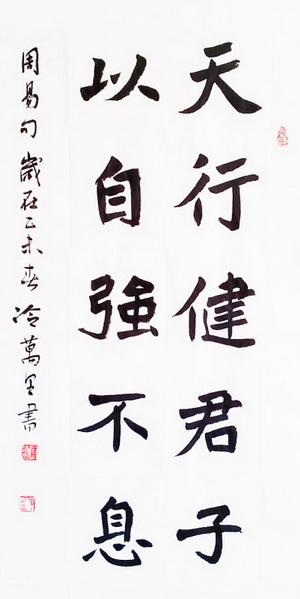 天行健君子
以自強不息
周易句 歲在乙未春 冷萬里書